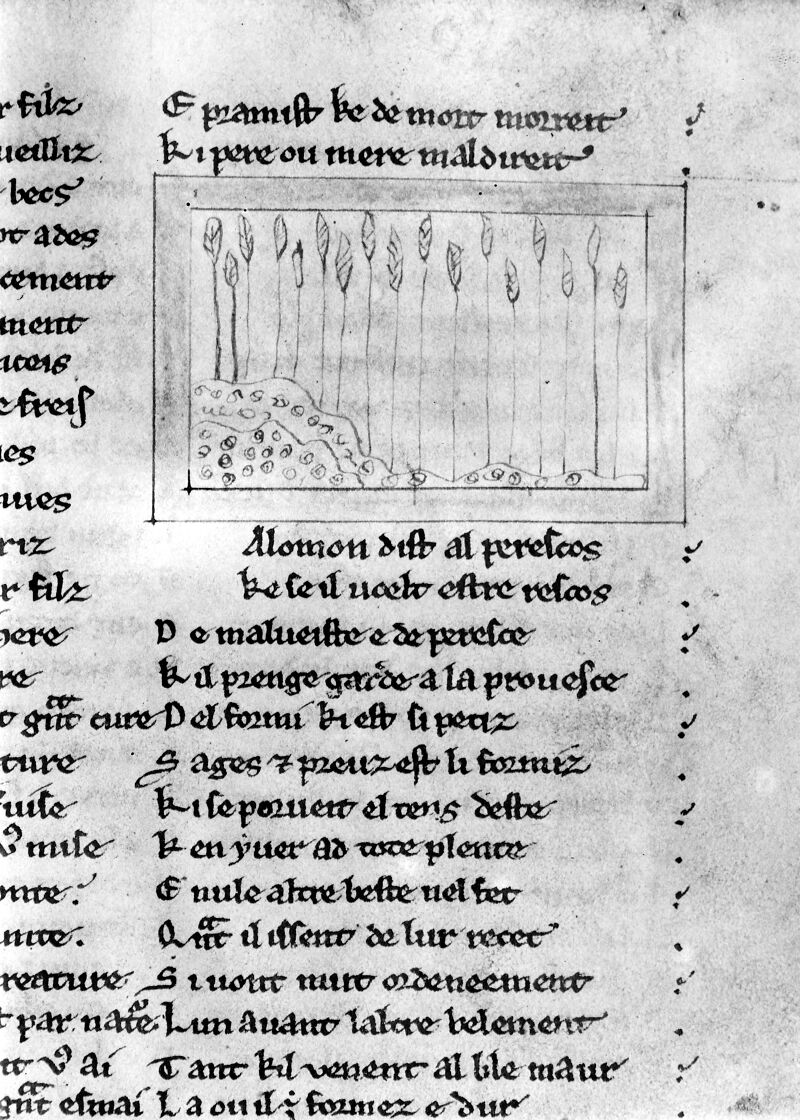 r filz
ueilliz
becs
ot ades
cement
ment
iceis
e freis
es
nues
riz
r filz
here
re
t gnt cure
ture
uise
nuise
onte.
unte.
creature
t par nate
nt vo ai
gnt esmai
E pramist ke de mort morreit
Ki pere ou mere maldireit
Alomon dist al perescos
ke se il uelt estre rescos
De malueiste e de peresce
Kil prenge garde a la prouesce
Del formi ki est si petiz
Sages ⁊ preuz est li formiz
Ki se porueit el tens deste
Ken yuer ad tote plente
E nule altre beste nel fet
Qnt il issent de lur recet
Si uont mut ordeneement
Lun auant laltre belement
Tant kil venent al ble maur
La ou il formez e dur